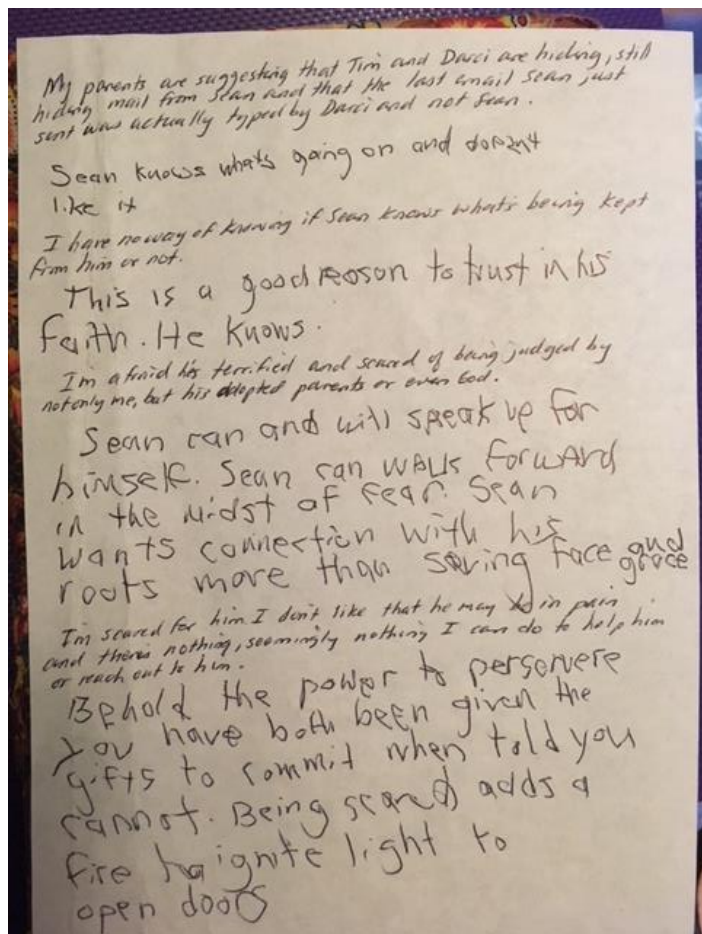 My parents are suggesting that Tim and Darci are hiding, still
hiding mail from Sean and that the last email Sean just
sent was actually typed by Darci and not Sean.
Sean knows whats going on and doesnt
like it
I have no way of knowing if Sean knows what's being kept
from him or not.
This is a good reason to trust in his
faith. He knows.
I'm afraid he's terrified and scared of being judged by
not only me, but his adopted parents or even God.
Sean can and will speak up for
himself. Sean can walk forward
in the midst of fear. Sean
wants connection with his
roots more than saving face and
grace
I'm scared for him. I don't like that he may be in pain
and there's nothing, seemingly nothing I can do to help him
or reach out to him.
Behold the power to perservere
you have both been given the
gifts to commit when told you
cannot. Being scared adds a
fire to ignite light to
open doors